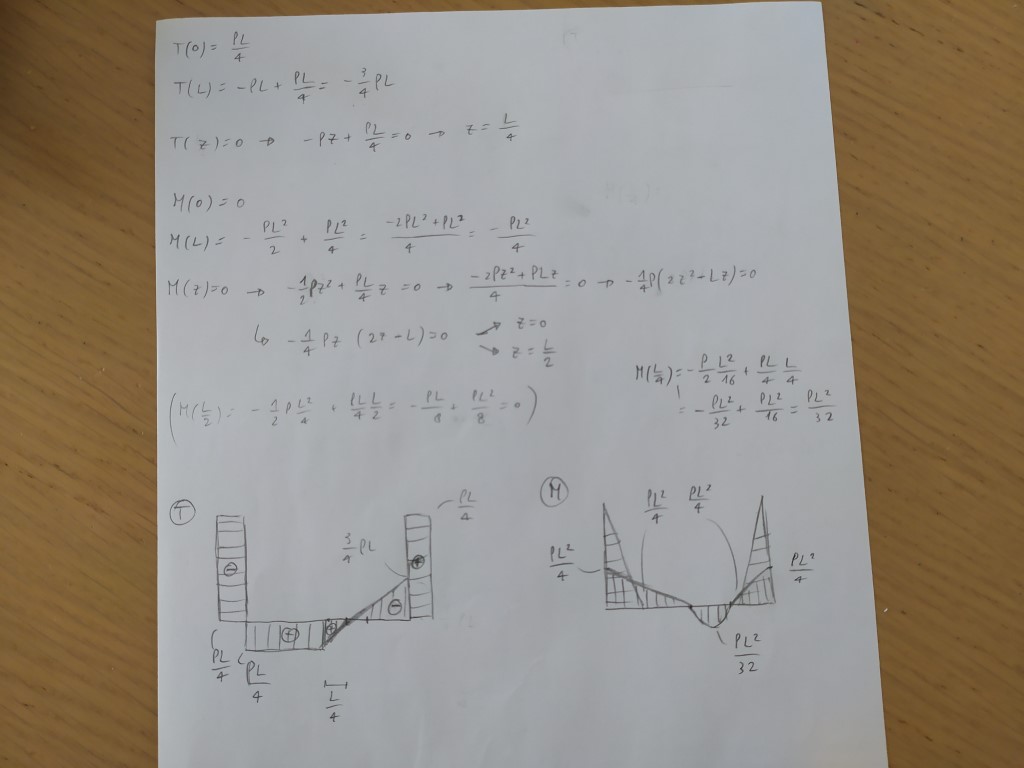 T(0) = PL/4
T(L) = -PL + PL/4 = -3/4 PL
T(z)=0 → -Pz + PL/4 = 0 → z = L/4
M(0) = 0
M(L) = -PL²/2 + PL²/4 = (-2PL²+PL²)/4 = -PL²/4
M(z)=0 → -1/2 Pz² + PL/4 z = 0 → (-2Pz²+PLz)/4 = 0 → -1/4 P(2z²+Lz)=0
↳ -1/4 Pz (2z-L)=0 → z=0
→ z = L/2
M(L/4) = -P/2 L²/16 + PL/4 L/4
= -PL²/32 + PL²/16 = PL²/32
(M(L/2) = -1/2 P L²/4 + PL/4 L/2 = -PL/8 + PL²/8 = 0)
T
⊖
PL/4
PL/4
⊕
⊕
L/4
⊖
3/4 PL
⊕
PL/4
M
PL²/4
PL²/4
PL²/4
PL²/32
PL²/4